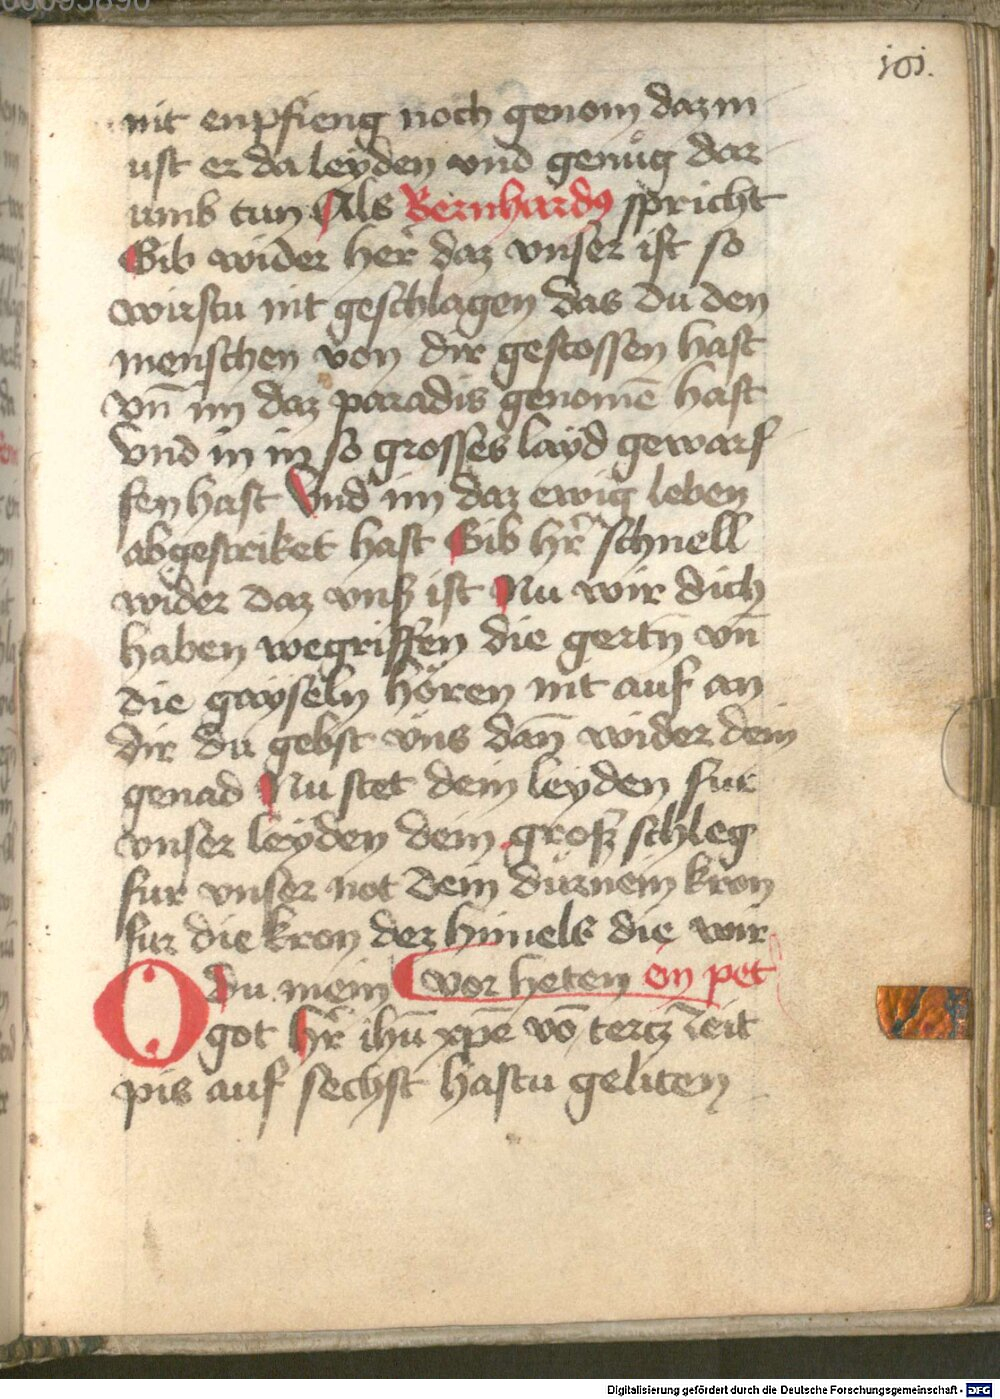 161.
nit enpfieng noch genom dazm
ust er da leyden vnd genug dar
umb tun Als Bernhardꝰ spricht
Gib wider her daz vnser ist so
wirstu nit geschlagen das du den
menschen von dir gestossen hast
vn̄ im daz paradis genomē hast
Vnd in in so grosses layd gewarf
fen hast Vnd im daz ewig leben
abgestriket hast Gib hr̄ schnell
wider daz vnß ist Nu wir dich
haben wegriffen die gertn̄ vn̄
die gayseln hören nit auf an
dir du gebst vns dan̄ wider dein
genad Nu stet dein leyden fur
vnser leyden dein groß schleg
fur vnser not dein dürnein kron
fur die kron dez himels die wir
O du mein vor heten ein pet
got hr̄ ihū xp̄e vō tercz zeit
pis auf sechst hastu geliten
Digitalisierung gefördert durch die Deutsche Forschungsgemeinschaft - DFG